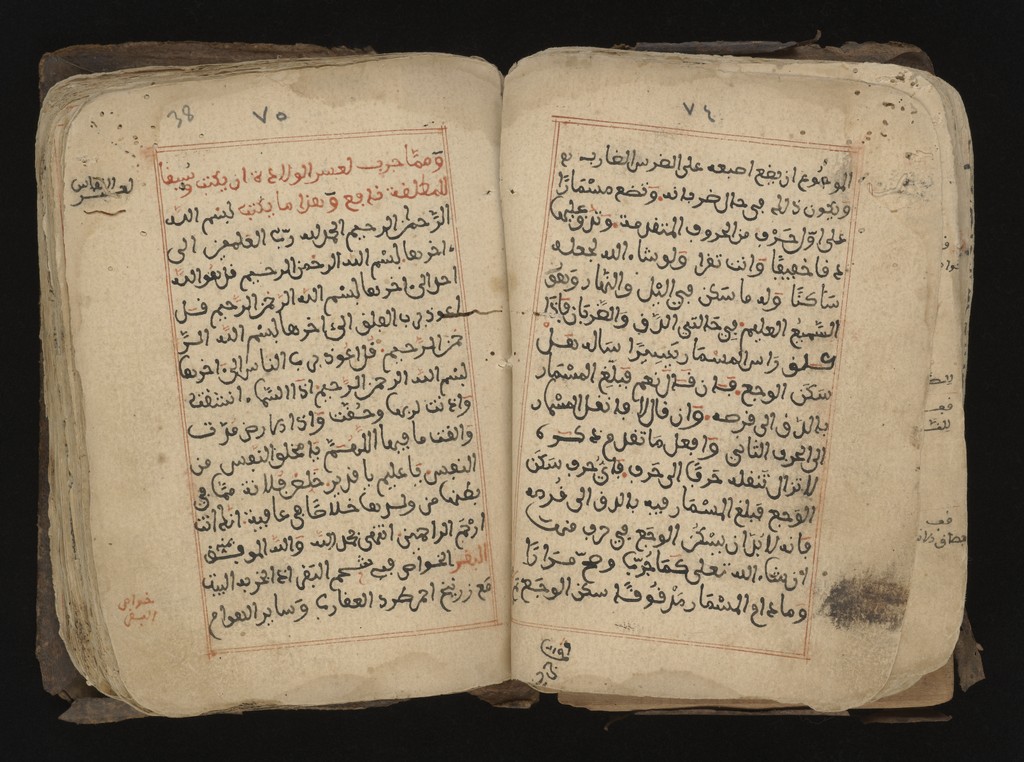 ٧٤
الموجوع ان يضع اصبعه على الضرس الضارب
ويكون ذلك في حال ضربانه وتضع مسمارا
على اول حرف من الحروف المتقدمة وتدق عليه
دقا خفيفا وانت تقرا ولو شاء الله لجعله
ساكنا وله ما سكن في اليل والنهار وهو
السميع العليم في حالتي الدق والضربان فاذا
علق راس المسمار يسيرا ساله هل
سكن الوجع فان قال نعم فبلغ المسمار
بالدق الى قرصه وان قال لا فانقل المسمار
الى الحرف الثاني وافعل ما تقدم ذكره
لا تزال تنقله حرفا الى حرف فاي حرف سكن
الوجع فبلغ المسمار فيه بالدق الى قرصه
فانه لا بد ان يسكن الوجع في حرف منه
ان شاء الله تعلى كما جرب وصح مرارا
وما دام المسمار مدقوقا سكن الوجع
٧٥
38
ومما جرب لعسر الولادة ان يكتب ويسقا
للمطلقة نافع وهذا ما يكتب بسم الله
الرحمن الرحيم الحمد لله رب العلمين الى
اخرها بسم الله الرحمن الرحيم قل هو الله
احد الى اخرها بسم الله الرحمن الرحيم قل
اعوذ برب الفلق الى اخرها بسم الله الر
حمن الرحيم قل اعوذ برب الناس الى اخرها
بسم الله الرحمن الرحيم اذا السماء انشقت
واذنت لربها وحقت واذا الارض مدت
والقت ما فيها اللهم يا مخلق النفس من
النفس يا عليم يا قدير خلص فلانة مما في
بطنها من ولدها خلاصا في عافية انك انت
ارحم الراحمين انتهى بحمد الله والله الموفق
البقر لخواص فيه شحم البقر اذا بخر به البيت
مع زرنيخ احمر طرد العقارب وساير الهوام
لعسر النفاس
خواص
البقر